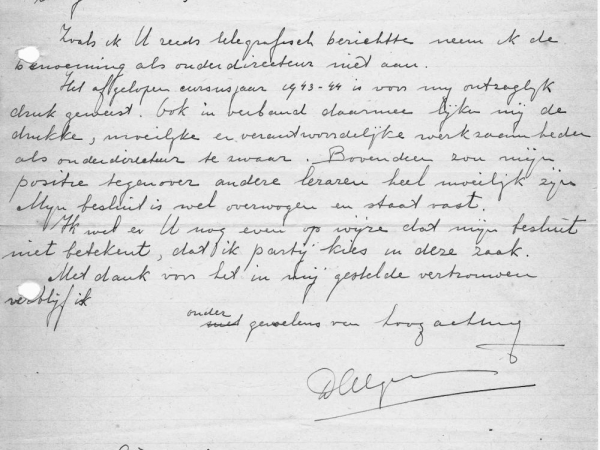 Zoals ik U reeds telegrafisch berichtte neem ik de
benoeming als onderdirecteur niet aan.
Het afgelopen cursusjaar 1943-44 is voor mij ontzaglijk
druk geweest. Ook in verband daarmee lijken mij de
drukke, moeilijke en verantwoordelijke werkzaamheden
als onderdirecteur te zwaar. Bovendien zou mijn
positie tegenover andere leraren heel moeilijk zijn
Mijn besluit is wel overwogen en staat vast.
Ik wil er U nog even op wijze dat mijn besluit
niet betekent, dat ik partij kies in deze zaak.
Met dank voor het in mij gestelde vertrouwen
verblijf ik
onder
met gevoelens van hoogachting